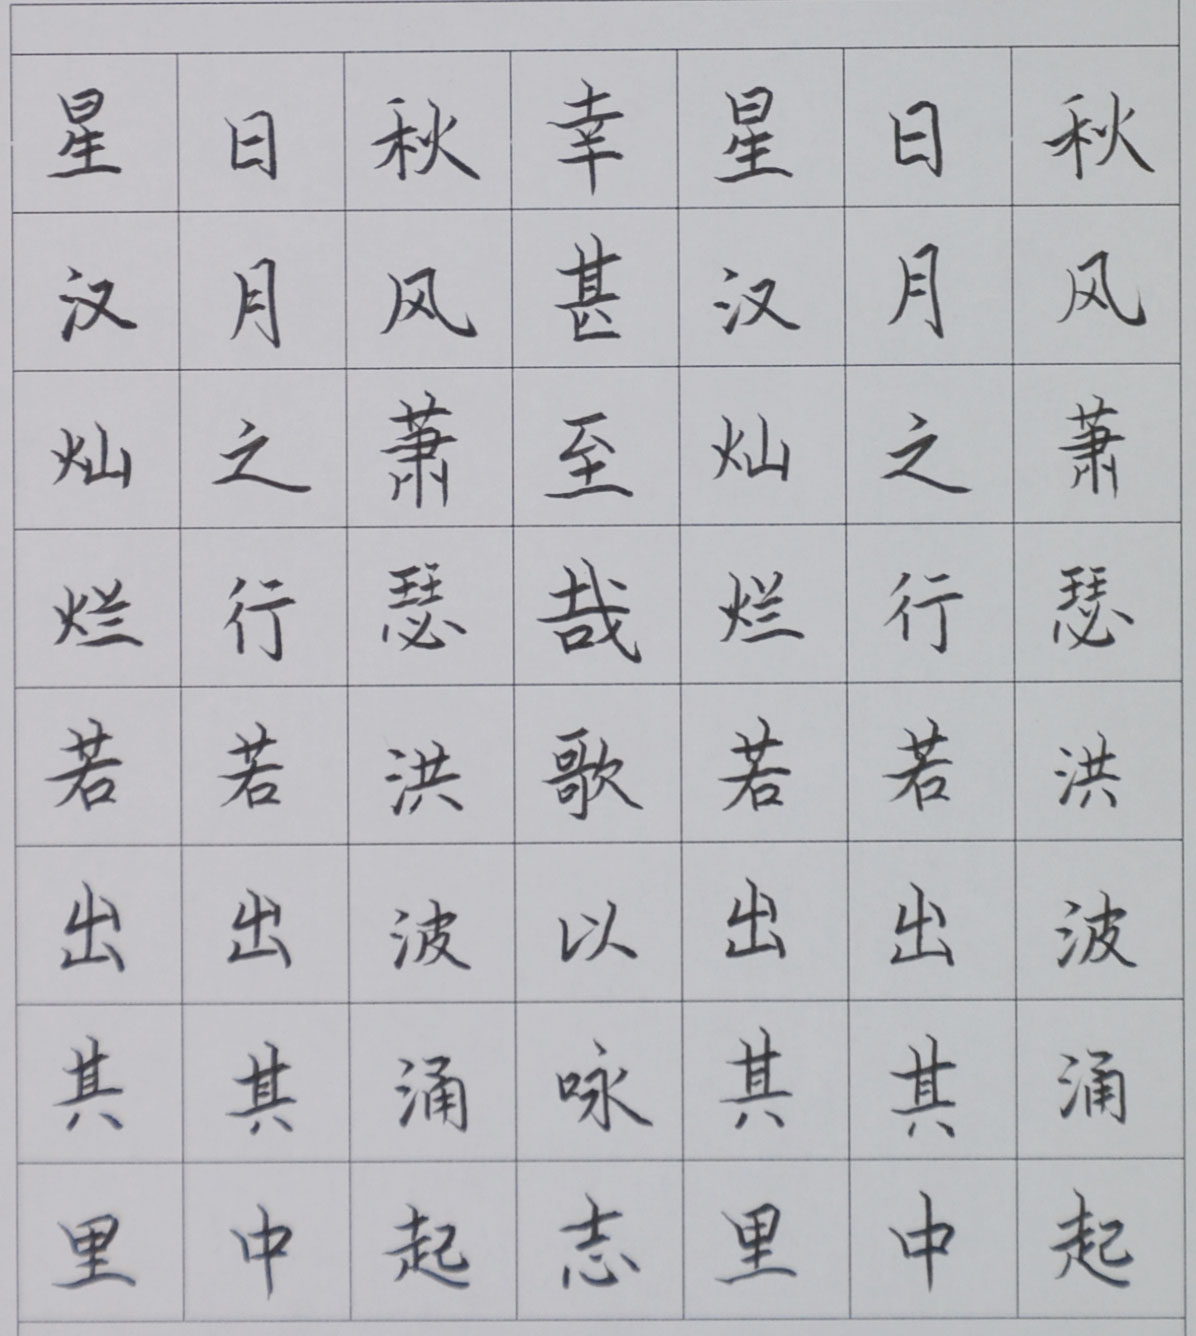 秋风萧瑟洪波涌起
日月之行若出其中
星汉灿烂若出其里
幸甚至哉歌以咏志
秋风萧瑟洪波涌起
日月之行若出其中
星汉灿烂若出其里